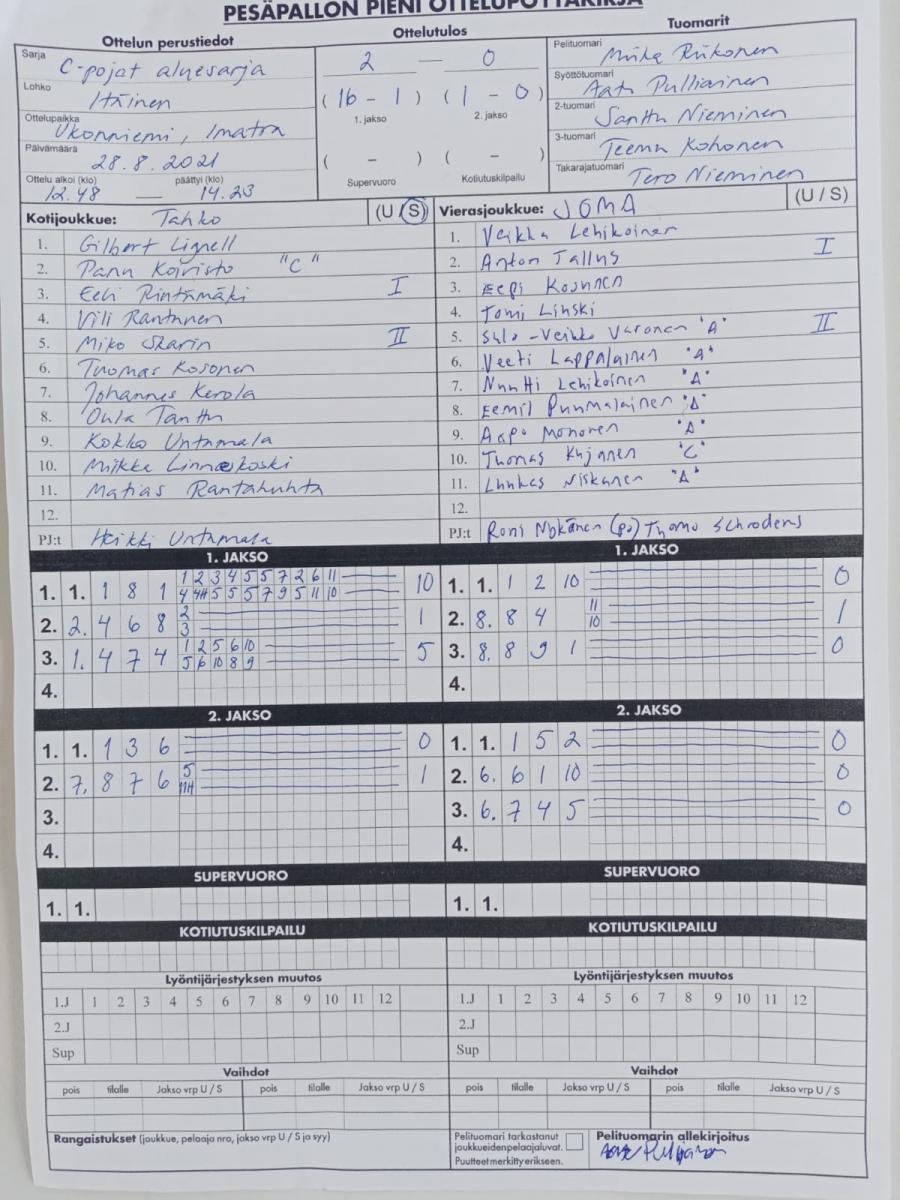 PESÄPALLON PIENI OTTELUPÖYTÄKIRJA
Ottelun perustiedot
Sarja
C-pojat aluesarja
Lohko
Itäinen
Ottelupaikka
Ukonniemi, Imatra
Päivämäärä
28.8.2021
Ottelu alkoi (klo) päättyi (klo)
12.48 — 14.23
Ottelutulos
2 — 0
(16 - 1) (1 - 0)
1. jakso 2. jakso
( - ) ( - )
Supervuoro Kotiutuskilpailu
Tuomarit
Pelituomari
Miika Riikonen
Syöttötuomari
Aatu Pulliainen
2-tuomari
Santtu Nieminen
3-tuomari
Teemu Kohonen
Takarajatuomari
Tero Nieminen
Kotijoukkue: Tahko (U / S)
1. Gilbert Lignell
2. Panu Koivisto "C"
3. Eeli Rintamäki I
4. Vili Rantanen
5. Miko Skarin II
6. Tuomas Kosonen
7. Johannes Kerola
8. Oula Tanttu
9. Kokko Untamala
10. Miikka Linnakoski
11. Matias Rantahuhta
12.
PJ:t Heikki Untamala
Vierasjoukkue: JOMA (U / S)
1. Veikka Lehikoinen
2. Anton Tallus I
3. Eepi Kosunen
4. Tomi Linski
5. Sulo-Veikko Varonen "A" II
6. Veeti Lappalainen "A"
7. Nuutti Lehikoinen "A"
8. Eemil Punmalainen "A"
9. Aapo Mononen "A"
10. Tuomas Kujanen "C"
11. Luukas Niskanen "A"
12.
PJ:t Roni Nykänen (pj) Thomo Schroderus
1. JAKSO
1. 1. 1 8 1 1 2 3 4 5 5 7 2 6 11 10
4 4H 5 5 5 7 9 5 11 10
2. 2. 4 6 8 2 1
3
3. 1. 4 7 4 1 2 5 6 10 5
5 6 10 8 9
4.
1. JAKSO
1. 1. 1 2 10 0
2. 8. 8 4 11 1
10
3. 8. 8 9 1 0
4.
2. JAKSO
1. 1. 1 3 6 0
2. 7. 8 7 6 5 1
11H
3.
4.
2. JAKSO
1. 1. 1 5 2 0
2. 6. 6 1 10 0
3. 6. 7 4 5 0
4.
SUPERVUORO
1. 1.
SUPERVUORO
1. 1.
KOTIUTUSKILPAILU
KOTIUTUSKILPAILU
Lyöntijärjestyksen muutos
1.J 1 2 3 4 5 6 7 8 9 10 11 12
2.J
Sup
Lyöntijärjestyksen muutos
1.J 1 2 3 4 5 6 7 8 9 10 11 12
2.J
Sup
Vaihdot
pois tilalle Jakso vrp U / S pois tilalle Jakso vrp U / S
Vaihdot
pois tilalle Jakso vrp U / S pois tilalle Jakso vrp U / S
Rangaistukset (joukkue, pelaaja nro, jakso vrp U / S ja syy)
Pelituomari tarkastanut
joukkueidenpelaajaluvat.
Puutteet merkitty erikseen.
Pelituomarin allekirjoitus